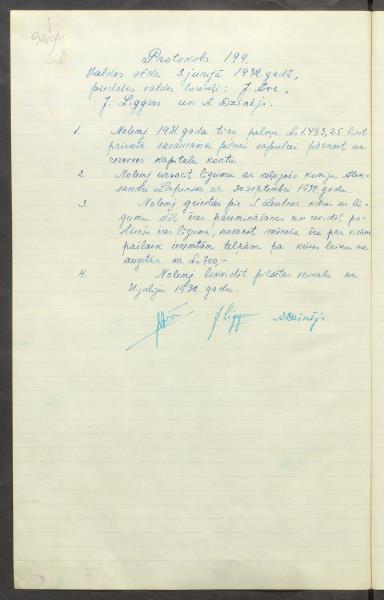 Protokols 199.
Valdes sēde 3. junijā 1932. gadā,
piedalas valdes locekļi: J.
J. Liggers un A. Dzinējs.
1. Nolemj 1931 gada tīro peļņu Ls 1.483,25 likt
priekšā sasaucamai pilnai sapulcei pārnest uz
rezerves kapitala kontu.
2. Nolemj uzsacīt līgumu ar ceļojošo
Lapinski uz 30 septembri 1932. gadu.
3. Nolemj griesties pie Leutner ar lū-
gumu dēļ īres pazemināšanas un
īres līgumu, nosakot mēneša īri par visām
pašlaik ieņemtām telpām pa laiku ne
augstāk kā Ls 700,-
4. Nolemj likvidēt pilsētas veikalu uz
31. juliju 1932. gadu.
J. Liggers ADzinējs